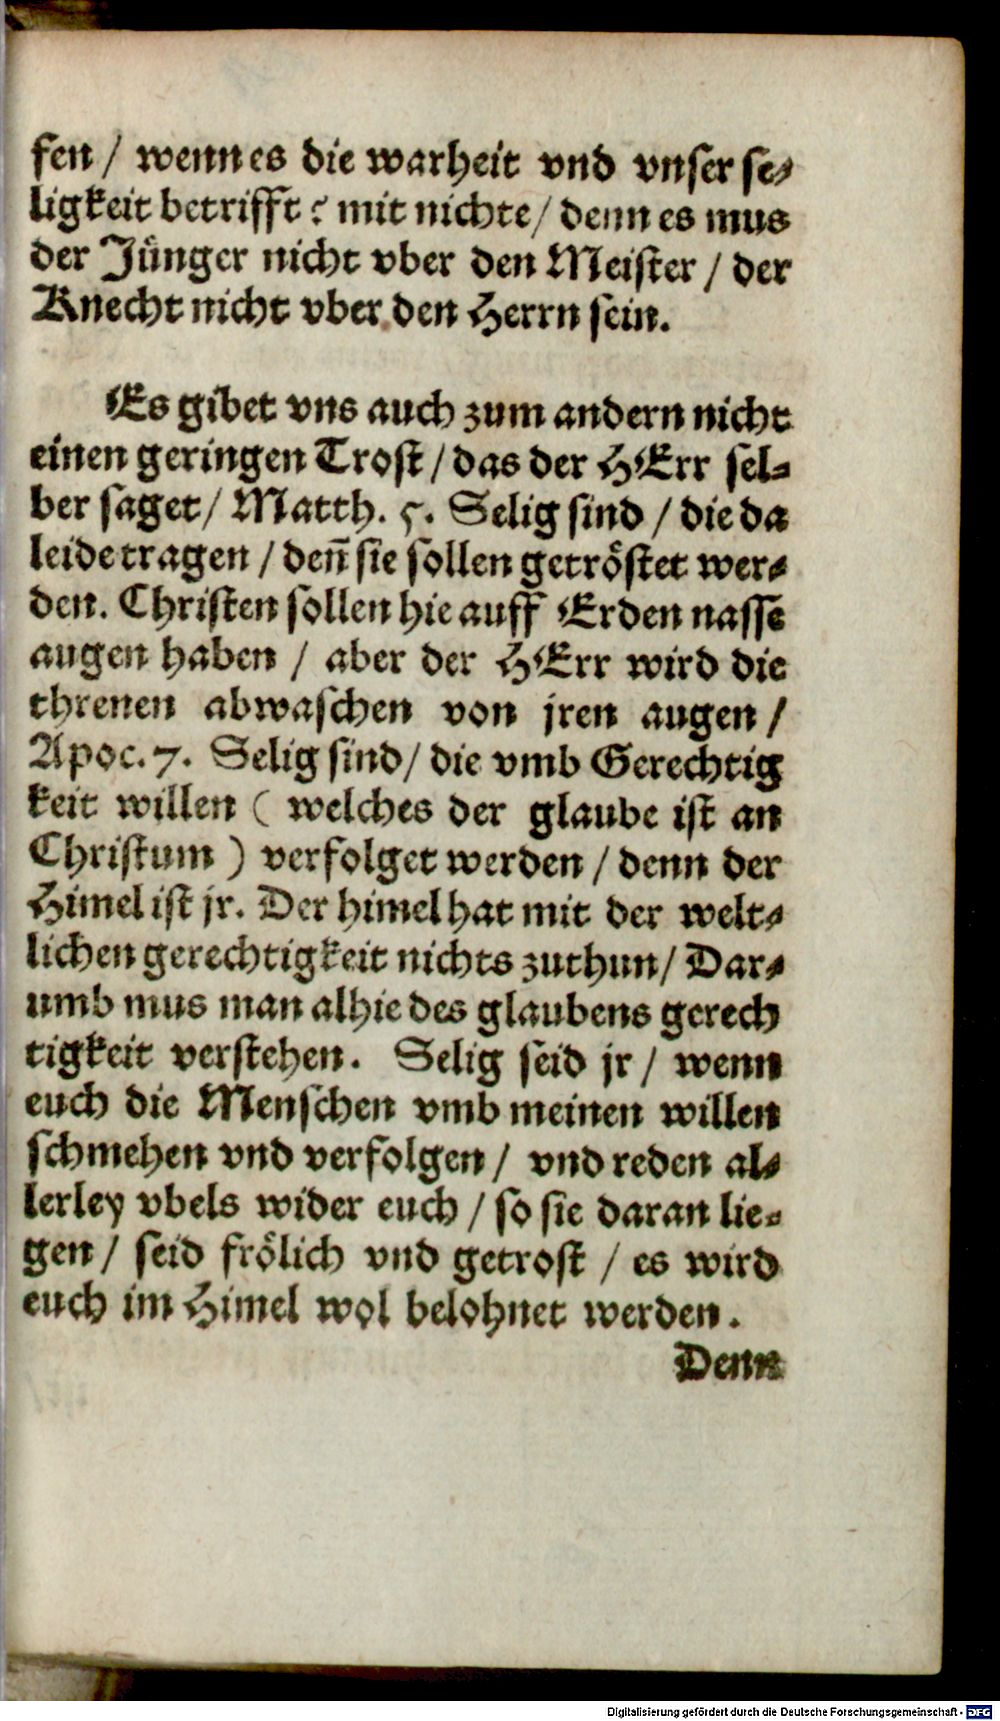 fen / wenn es die warheit vnd vnser se⸗
ligkeit betrifft? mit nichte / denn es mus
der Jünger nicht vber den Meister / der
Knecht nicht vber den Herrn sein.
Es gibet vns auch zum andern nicht
einen geringen Trost / das der HErr sel⸗
ber saget / Matth. 5. Selig sind / die da
leide tragen / deñ sie sollen getröstet wer⸗
den. Christen sollen hie auff Erden nasse
augen haben / aber der HErr wird die
threnen abwaschen von jren augen /
Apoc. 7. Selig sind / die vmb Gerechtig
keit willen ( welches der glaube ist an
Christum ) verfolget werden / denn der
Himel ist jr. Der himel hat mit der welt⸗
lichen gerechtigkeit nichts zuthun / Dar⸗
umb mus man alhie des glaubens gerech
tigkeit verstehen. Selig seid jr / wenn
euch die Menschen vmb meinen willen
schmehen vnd verfolgen / vnd reden al⸗
lerley vbels wider euch / so sie daran lie⸗
gen / seid frölich vnd getrost / es wird
euch im Himel wol belohnet werden.
Denn
Digitalisierung gefördert durch die Deutsche Forschungsgemeinschaft - DFG